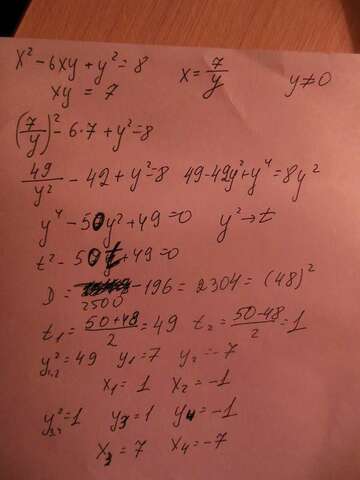 x² - 6xy + y² = 8
xy = 7
x = 7/y
y ≠ 0
(7/y)² - 6·7 + y² = 8
49/y² - 42 + y² = 8
49 - 42y² + y⁴ = 8y²
y⁴ - 50y² + 49 = 0
y² → t
t² - 50t + 49 = 0
D = 2500 - 196 = 2304 = (48)²
t₁ = (50+48)/2 = 49
t₂ = (50-48)/2 = 1
y²₁,₂ = 49
y₁ = 7
y₂ = -7
x₁ = 1
x₂ = -1
y²₃,₄ = 1
y₃ = 1
y₄ = -1
x₃ = 7
x₄ = -7